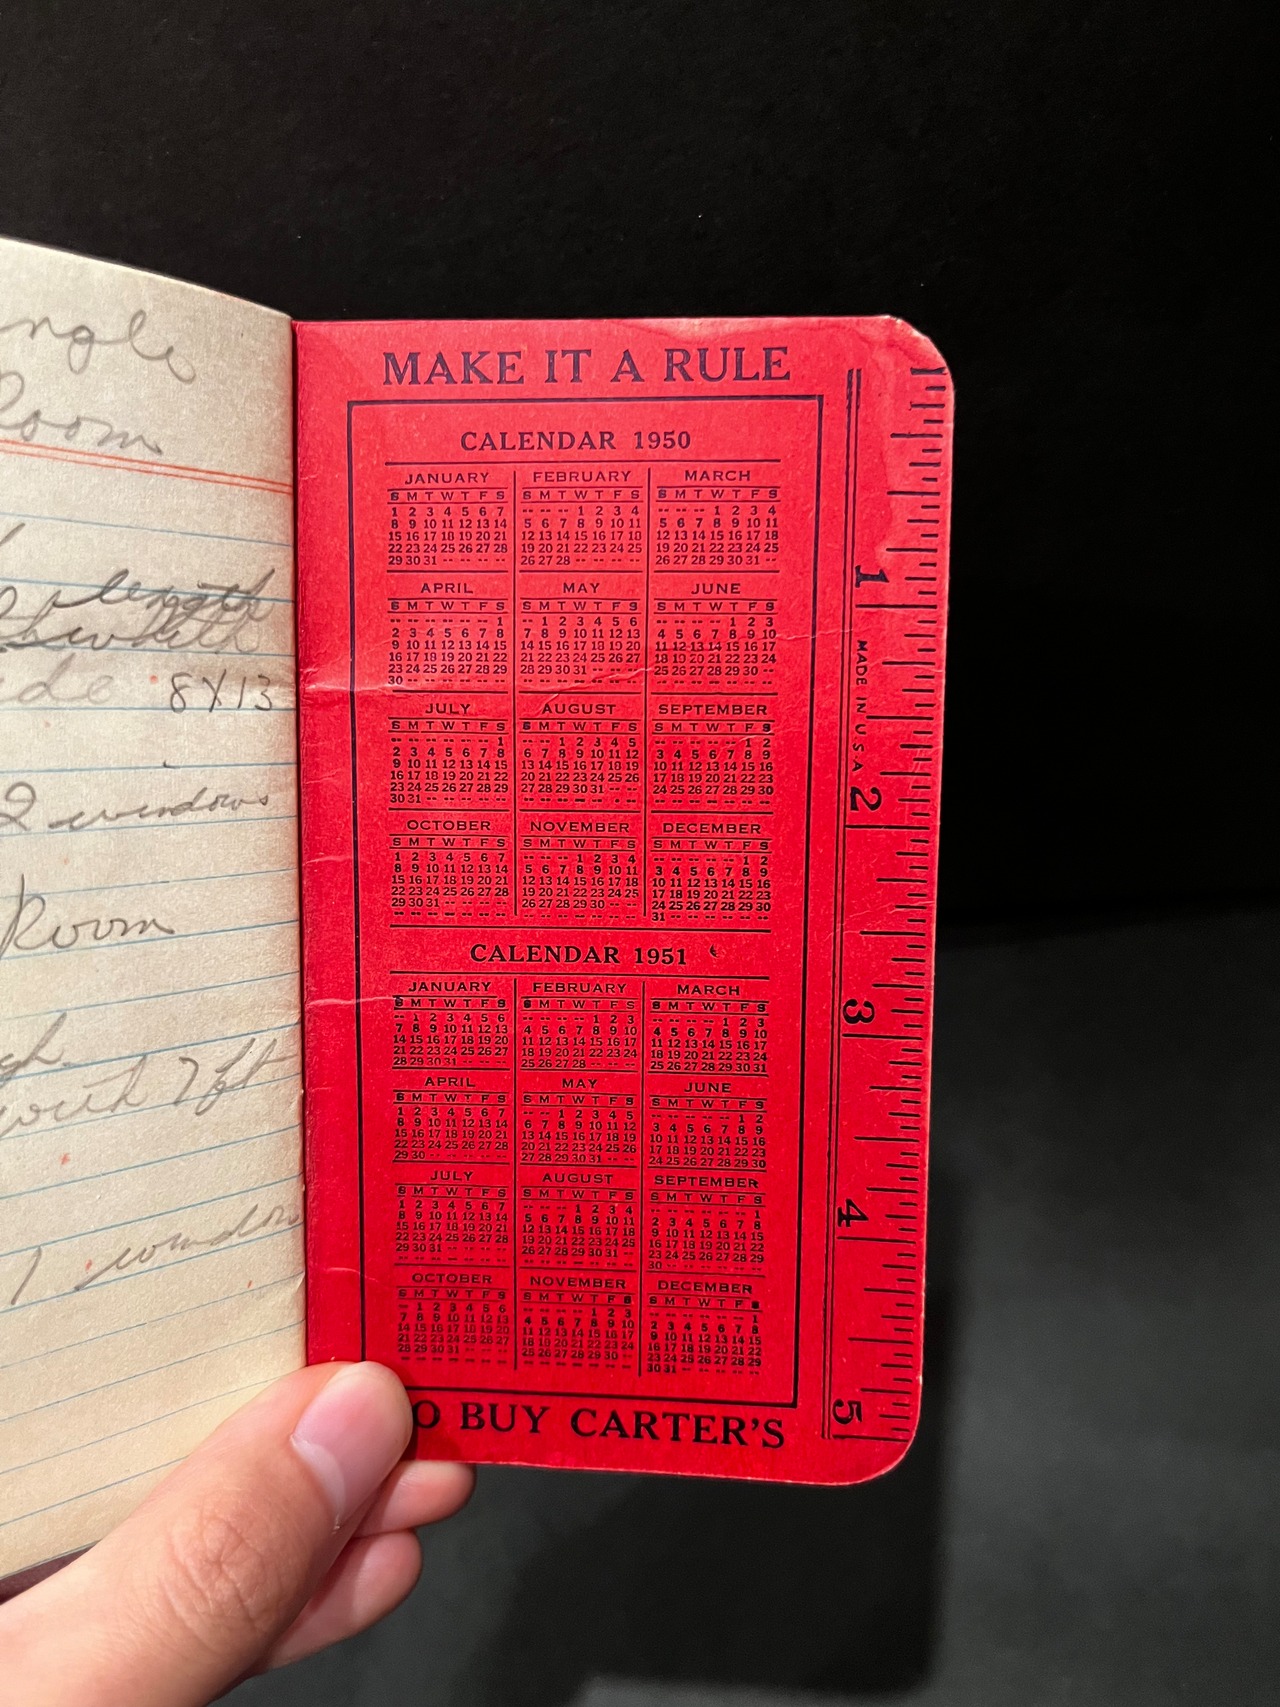 ngle
Room
length
8X13
2 windows
Room
7 ft
1 window
MAKE IT A RULE
CALENDAR 1950
JANUARY
S M T W T F S
1 2 3 4 5 6 7
8 9 10 11 12 13 14
15 16 17 18 19 20 21
22 23 24 25 26 27 28
29 30 31 -- -- -- --
FEBRUARY
S M T W T F S
-- -- -- 1 2 3 4
5 6 7 8 9 10 11
12 13 14 15 16 17 18
19 20 21 22 23 24 25
26 27 28 -- -- -- --
MARCH
S M T W T F S
-- -- -- 1 2 3 4
5 6 7 8 9 10 11
12 13 14 15 16 17 18
19 20 21 22 23 24 25
26 27 28 29 30 31 --
APRIL
S M T W T F S
-- -- -- -- -- -- 1
2 3 4 5 6 7 8
9 10 11 12 13 14 15
16 17 18 19 20 21 22
23 24 25 26 27 28 29
30 -- -- -- -- -- --
MAY
S M T W T F S
-- 1 2 3 4 5 6
7 8 9 10 11 12 13
14 15 16 17 18 19 20
21 22 23 24 25 26 27
28 29 30 31 -- -- --
-- -- -- -- -- -- --
JUNE
S M T W T F S
-- -- -- -- 1 2 3
4 5 6 7 8 9 10
11 12 13 14 15 16 17
18 19 20 21 22 23 24
25 26 27 28 29 30 --
-- -- -- -- -- -- --
JULY
S M T W T F S
-- -- -- -- -- -- 1
2 3 4 5 6 7 8
9 10 11 12 13 14 15
16 17 18 19 20 21 22
23 24 25 26 27 28 29
30 31 -- -- -- -- --
AUGUST
S M T W T F S
-- -- 1 2 3 4 5
6 7 8 9 10 11 12
13 14 15 16 17 18 19
20 21 22 23 24 25 26
27 28 29 30 31 -- --
-- -- -- -- -- -- --
SEPTEMBER
S M T W T F S
-- -- -- -- -- 1 2
3 4 5 6 7 8 9
10 11 12 13 14 15 16
17 18 19 20 21 22 23
24 25 26 27 28 29 30
-- -- -- -- -- -- --
OCTOBER
S M T W T F S
1 2 3 4 5 6 7
8 9 10 11 12 13 14
15 16 17 18 19 20 21
22 23 24 25 26 27 28
29 30 31 -- -- -- --
-- -- -- -- -- -- --
NOVEMBER
S M T W T F S
-- -- -- 1 2 3 4
5 6 7 8 9 10 11
12 13 14 15 16 17 18
19 20 21 22 23 24 25
26 27 28 29 30 -- --
-- -- -- -- -- -- --
DECEMBER
S M T W T F S
-- -- -- -- -- 1 2
3 4 5 6 7 8 9
10 11 12 13 14 15 16
17 18 19 20 21 22 23
24 25 26 27 28 29 30
31 -- -- -- -- -- --
CALENDAR 1951
JANUARY
S M T W T F S
-- 1 2 3 4 5 6
7 8 9 10 11 12 13
14 15 16 17 18 19 20
21 22 23 24 25 26 27
28 29 30 31 -- -- --
FEBRUARY
S M T W T F S
-- -- -- -- 1 2 3
4 5 6 7 8 9 10
11 12 13 14 15 16 17
18 19 20 21 22 23 24
25 26 27 28 -- -- --
MARCH
S M T W T F S
-- -- -- -- 1 2 3
4 5 6 7 8 9 10
11 12 13 14 15 16 17
18 19 20 21 22 23 24
25 26 27 28 29 30 31
APRIL
S M T W T F S
1 2 3 4 5 6 7
8 9 10 11 12 13 14
15 16 17 18 19 20 21
22 23 24 25 26 27 28
29 30 -- -- -- -- --
MAY
S M T W T F S
-- -- 1 2 3 4 5
6 7 8 9 10 11 12
13 14 15 16 17 18 19
20 21 22 23 24 25 26
27 28 29 30 31 -- --
JUNE
S M T W T F S
-- -- -- -- -- 1 2
3 4 5 6 7 8 9
10 11 12 13 14 15 16
17 18 19 20 21 22 23
24 25 26 27 28 29 30
JULY
S M T W T F S
1 2 3 4 5 6 7
8 9 10 11 12 13 14
15 16 17 18 19 20 21
22 23 24 25 26 27 28
29 30 31 -- -- -- --
-- -- -- -- -- -- --
AUGUST
S M T W T F S
-- -- -- 1 2 3 4
5 6 7 8 9 10 11
12 13 14 15 16 17 18
19 20 21 22 23 24 25
26 27 28 29 30 31 --
-- -- -- -- -- -- --
SEPTEMBER
S M T W T F S
-- -- -- -- -- -- 1
2 3 4 5 6 7 8
9 10 11 12 13 14 15
16 17 18 19 20 21 22
23 24 25 26 27 28 29
30 -- -- -- -- -- --
OCTOBER
S M T W T F S
-- 1 2 3 4 5 6
7 8 9 10 11 12 13
14 15 16 17 18 19 20
21 22 23 24 25 26 27
28 29 30 31 -- -- --
-- -- -- -- -- -- --
NOVEMBER
S M T W T F S
-- -- -- -- 1 2 3
4 5 6 7 8 9 10
11 12 13 14 15 16 17
18 19 20 21 22 23 24
25 26 27 28 29 30 --
-- -- -- -- -- -- --
DECEMBER
S M T W T F S
-- -- -- -- -- -- 1
2 3 4 5 6 7 8
9 10 11 12 13 14 15
16 17 18 19 20 21 22
23 24 25 26 27 28 29
30 31 -- -- -- -- --
O BUY CARTER'S
1
MADE IN U S A
2
3
4
5